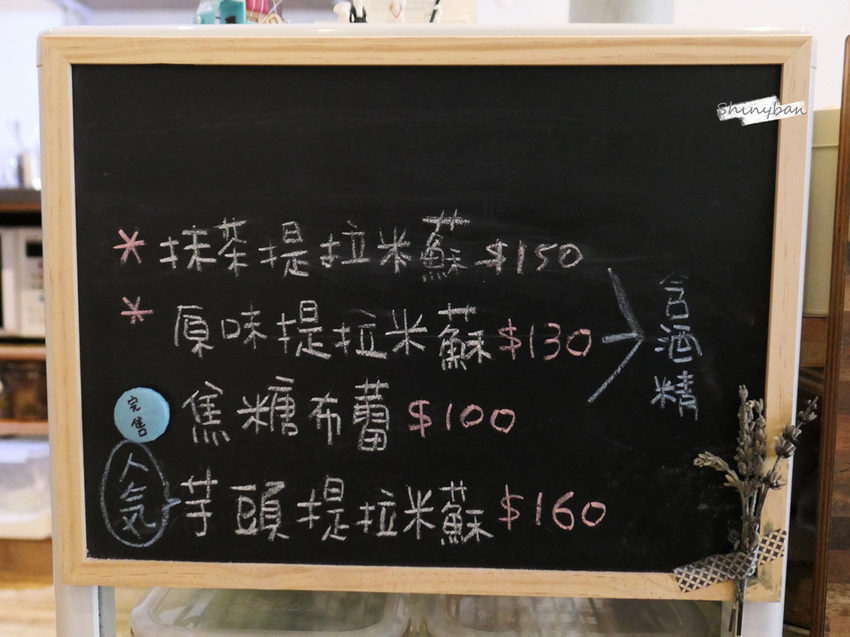 Shinyban
* 抹茶提拉米蘇 $150
* 原味提拉米蘇 $130
含酒精
完售
焦糖布蕾 $100
人気
芋頭提拉米蘇 $160